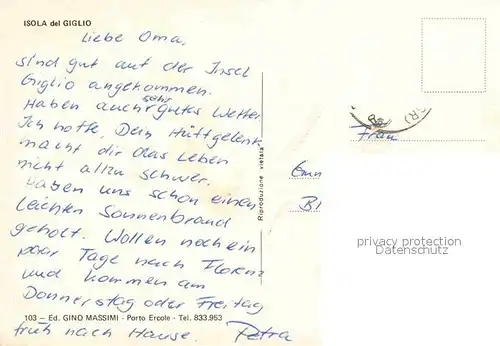 ISOLA del GIGLIO
Liebe Oma,
sind gut auf der Insel
Giglio angekommen.
Haben auch sehr gutes Wetter.
Ich hoffe, Dein Hüftgelenk
macht dir das Leben
nicht allzu schwer.
Haben uns schon einen
leichten Sonnenbrand
geholt. Wollen noch ein
paar Tage nach Florenz
und kommen am
Donnerstag oder Freitag
103 — Ed. GINO MASSIMI - Porto Ercole - Tel. 833.953
früh nach Hause. Petra
Riproduzione vietata
Frau
privacy protection
Datenschutz